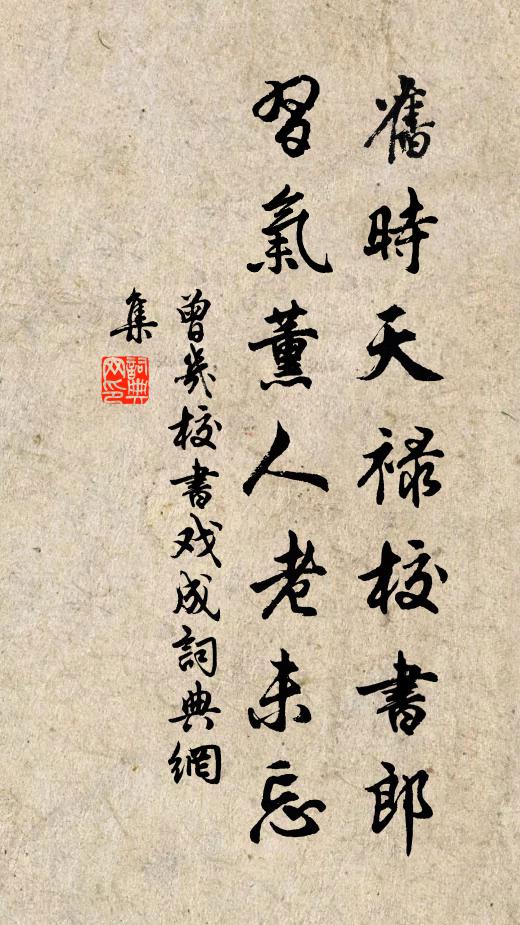 舊時天禄校書郎
習氣薰人老未忘
曾幾校書戏成詞典網
集
詞典
网印